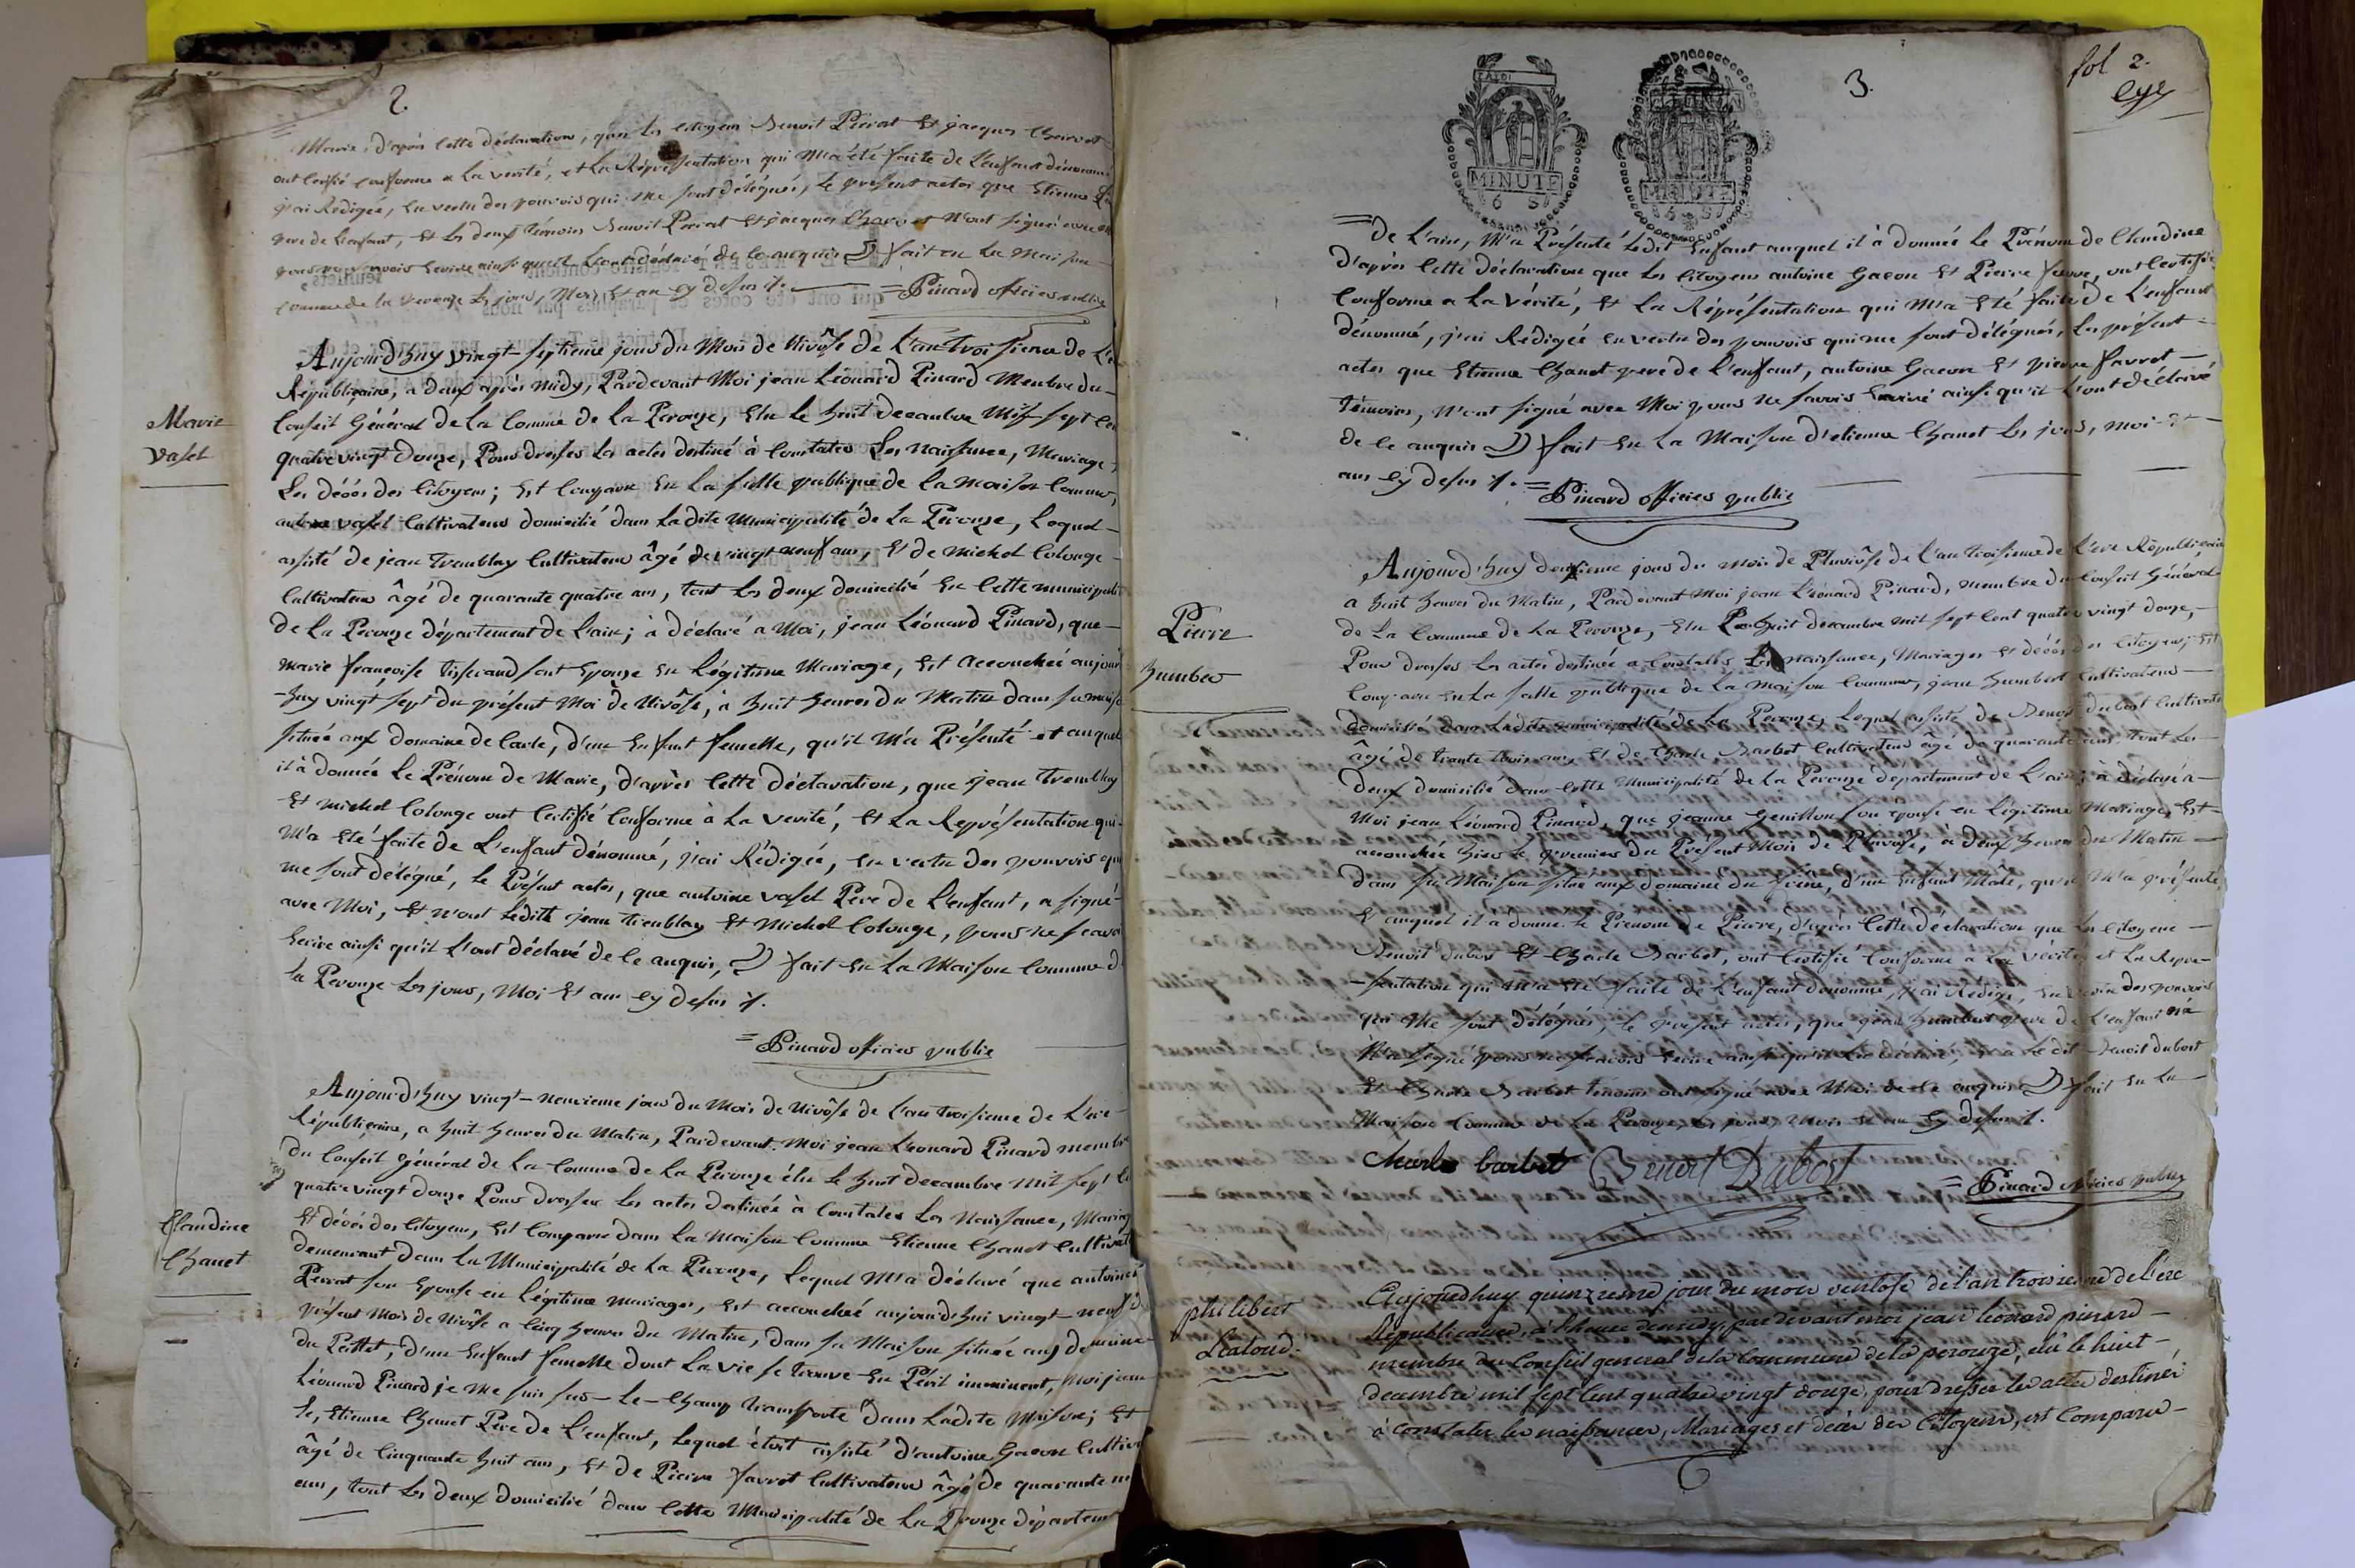 2.
Marie, d'après cette déclaration, que les citoyens Benoit Perrat et jacques
ont certifié conforme a la verité, et la Réprésentation qui m'a été faite de l'enfant dénommé
j'ai Rédigée, en vertu des pouvoirs qui me sont délégués, le présent actes que Etienne
pere de l'enfant, et les deux témoins Benoit Perrat et jacques n'ont signé avec
pour ne savoir Ecrire ainsi qu'il l'ont déclaré de ce anquis fait en la maison
commune de la perouze les jour, Mois et an cy desus
= Pinard officier public
Marie
Vaset
Aujourd'huy vingt-septieme jour du Mois de Nivôse de L'an Troisieme de L'
Républiquaine, a deux après midy, Pardevant Moi jean Léonard Pinard Membre du-
Conseil Général de la Comme de la Perouze, Elu le huit decambre Mil sept
quatre vingt Douze, Pour dresser les actes destiné à Constater Les Naissance, Mariage,
Les décés des Citoyens; Est Comparu En la salle publique de la Maison Comme,
antoine vaset Cultivateur domicilié dans la dite Municipalité de la Perouze, Lequel-
assisté de jean Tremblay Cultivateur âgé de vingt neuf ans, Et de Michel Colonge-
Cultivateur âgé de quarante quatre ans, tout les deux domicilié En Cette municipalité
de La Perouze département de L'ain; à déclaré a Moi, jean Léonard Pinard, que-
marie françoise Tisserand sont Epouze En Légitime Mariage, Est accouchée aujourd
-huy vingt sept du présent Moi de Nivôse, à huit heures du Matin dans sa maison
située aux domaine de Carle, d'une Enfant femelle, qu'il M'a Présenté et auquel
il à donnée Le Prénom de Marie, d'après Cette Déclaration, que jean Tremblay
Et Michel Colonge ont Certifié Conforme à La verité, Et La Représentation qui-
M'a Eté faite de L'enfant dénommé, j'ai Rédigée, En vertu des pouvoirs qui
me sont délégué, le Présent actes, que antoine vaset Pere de L'enfant, a signé-
avec Moi, Et n'ont Ledits jean Tremblay Et Michel Colonge, pour ne savoir
Ecrire ainsi qu'il L'ont déclaré de ce anquis, fait En La Maison Commune de
la Perouze Les jour, Moi Et an cy desus
= Pinard officier public
Claudine
Chanet
Aujourd'huy vingt-neuvieme jour du Mois de Nivôse de L'an Troisieme de L'ere-
Républiquaine, a huit heures du Matin, Pardevant Moi jean Léonard Pinard membre
du Conseil Général de La Comme de La Perouze élu le huit decambre mil sept
quatre vingt douze Pour dresser les actes destinée à Constater Les Naissance, Mariage
Et décés des Citoyens, Est Comparu dans La Maison Commune Etienne Chanet Cultivat
demeurant dans La Municipalité de La Perouze, Lequel M'a déclaré que antoinet
Perrat son Epouse en Légitime mariages, Est accouchée aujourdhui vingt-neuf d
présent Mois de Nivôse a Cinq heures du Matin, dans sa Maison située aux domaine
du d'une Enfant femelle dont La vie se trouve En Péril imminent, Moi jean
Léonard Pinard je me suis sur-le-Champ transporté dans Ladite Maison; Et
Etienne Chanet Pere de L'enfant, Lequel étoit assisté d'antoine Gacon Cultiv
âgé de Cinquante huit ans, Et de Pierre favrot Cultivateur âgé de quarante
ans, tout les deux domicilié dans Cette Municipalité de La Perouze département
fol 2.
3.
MINUTE
MINUTE
=De L'ain, M'a Présenté Ledit Enfant auquel il à donnée Le Prénom de Claudine
d'après Cette déclaration que Les Citoyens antoine Gacon Et Pierre favrot, ont Certifié
Conforme a La vérité, Et La Réprésentation qui M'a Eté faite de L'enfant
dénommé, j'ai Rédigée en vertu des pouvoirs qui me sont délégués, Les présent-
actes que Etienne Chanet pere de L'enfant, antoine Gacon Et pierre favrot-
Témoins, N'ont signé avec Moi pour Ne savoir Ecrire ainsi qu'il L'ont déclaré
de ce anquis fait En La Maison d'etienne Chanet les jours, moi Et
an cy desus = Pinard officier public
Pierre
humber
Aujourd'huy deuxieme jour du mois de Pluviôse de L'an troisieme de L'ere Républiquain
a huit heures du Matin, Pardevant Moi jean Léonard Pinard, membre du Conseil Général
de La Commune de La Perouze, Elu Le huit decambre mil sept Cent quatre vingt douze,-
Pour dresser Les actes destinée a Constater Les naissance, Mariages Et décés des Citoyens; Est
Comparu En La salle publique de la Maison Commune, jean humbert Cultivateur-
domicilié dans Ladite municipalité de La Perouze, Lequel assisté de Benoit dubost Cultivate
âgé de trente trois ans Et de Charle Barbet Cultivateur âgé de quarante ans tout Les-
deux domicilié dans Cette Municipalité de La Perouze departement de L'ain; à déclaré a-
Moi jean Léonard Pinard, que jeanne Genillon son epouse en Légitime Mariage, Est-
accouchée hier Le premier du Present Mois de Pluviôse, a deux heures du Matin-
dans sa Maison situe aux domaine du frêne, d'une Enfant Male, qu'il M'a présenté,
Et auquel il a donne le Prénom de Pierre, d'après Cette déclaration que Les Citoyene-
Benoit dubost Et Charle Barbet, ont Certifié Conforme a La vérité, et La Repre-
-sentation qui m'a Eté faite de L'enfant dénommé, j'ai Redigé, En vertu des pouvoirs
qui Me sont délégués, le present actes, que jean humbert pere de L'enfant n'a
N'a signé pour ne savoir Ecrire ainsi qu'il La déclaré, Ledit Benoit dubost
Et Charle Barbet temoins ont signé avec Moi de ce anquis fait En La-
Maison Commune de La Perouze Les jour, Mois Et an cy desus
Charle barbet Benoit Dubost
= Pinard officier public
philibert
Lialoud.
Aujourdhuy quinzieme jour du mois ventose de l'an troisieme de l'ere
Républicaine, à l'heure de midy par devant moi jean leonard pinard-
membre du Conseil general de la Commune de la perouze, elû le huit-
decembre mil sept Cent quatre vingt douze, pour dresser les actes destinés
à Constater les naissances, Mariages et decès des Citoyens, est Comparu-